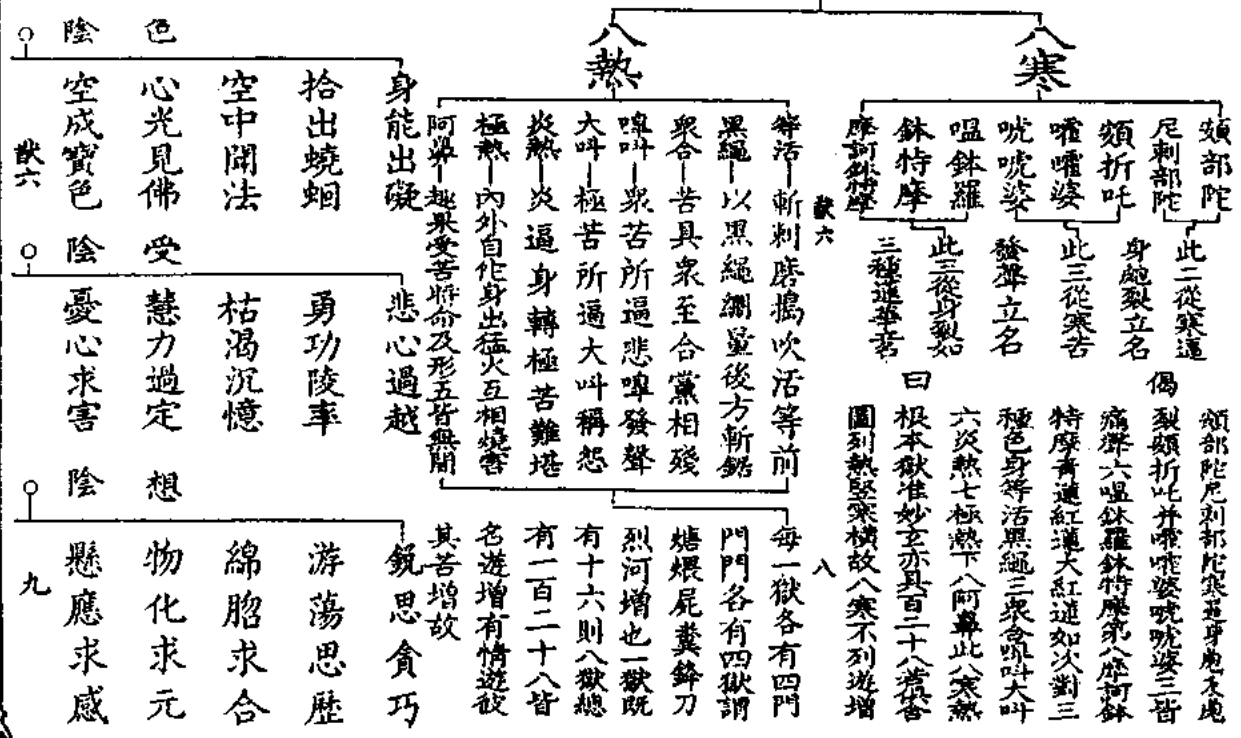 八寒
頞部陀
尼剌部陀
頞折吒
嚯嚯婆
唬唬婆
嗢鉢羅
鉢特摩
摩訶鉢特摩
此二從寒逼
身皰裂立名
此三從寒苦
發聲立名
此三從身裂如
三種蓮華立名
偈曰
頞部陀尼剌部陀寒逼身皰及皰
裂頞折吒并嚯嚯婆唬唬婆三皆
痛聲六嗢鉢羅鉢特摩第八摩訶鉢
特摩青蓮紅蓮大紅蓮如次對三
種色身等活黑繩三衆合嘷叫大叫
六炎熱七極熱下八阿鼻此八寒熱
根本獄准妙玄亦具百二十八
圖列熱竪寒橫故八寒不列遊增
八熱
等活－斬刺磨搗吹活等前
黑繩－以黑繩絣量後方斬鋸
衆合－苦具衆至合黨相殘
嘷叫－衆苦所逼悲嘷發聲
大叫－極苦所逼大叫稱怨
炎熱－炎逼身轉極苦難堪
極熱－內外自他身出猛火互相燒害
阿鼻－趣果受苦時命及形五皆無間
每一獄各有四門
門門各有四獄謂
煻煨屍糞鋒刀
烈河增也一獄既
有十六則八獄總
有一百二十八皆
名遊增有情遊彼
其苦增故
獸六
八
色陰
身能出礙
拾出蟯蛔
空中聞法
心光見佛
空成寶色
受陰
悲心過越
勇功陵率
枯渴沉憶
慧力過定
憂心求害
想陰
銳思貪巧
游蕩思歷
綿䐇求合
物化求元
懸應求感
獸六
九